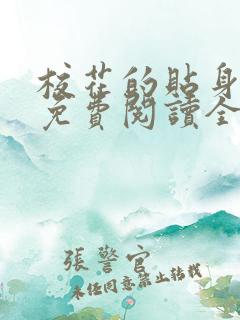 校花的貼身
免費閱讀全
張警官
未經同意禁止轉載